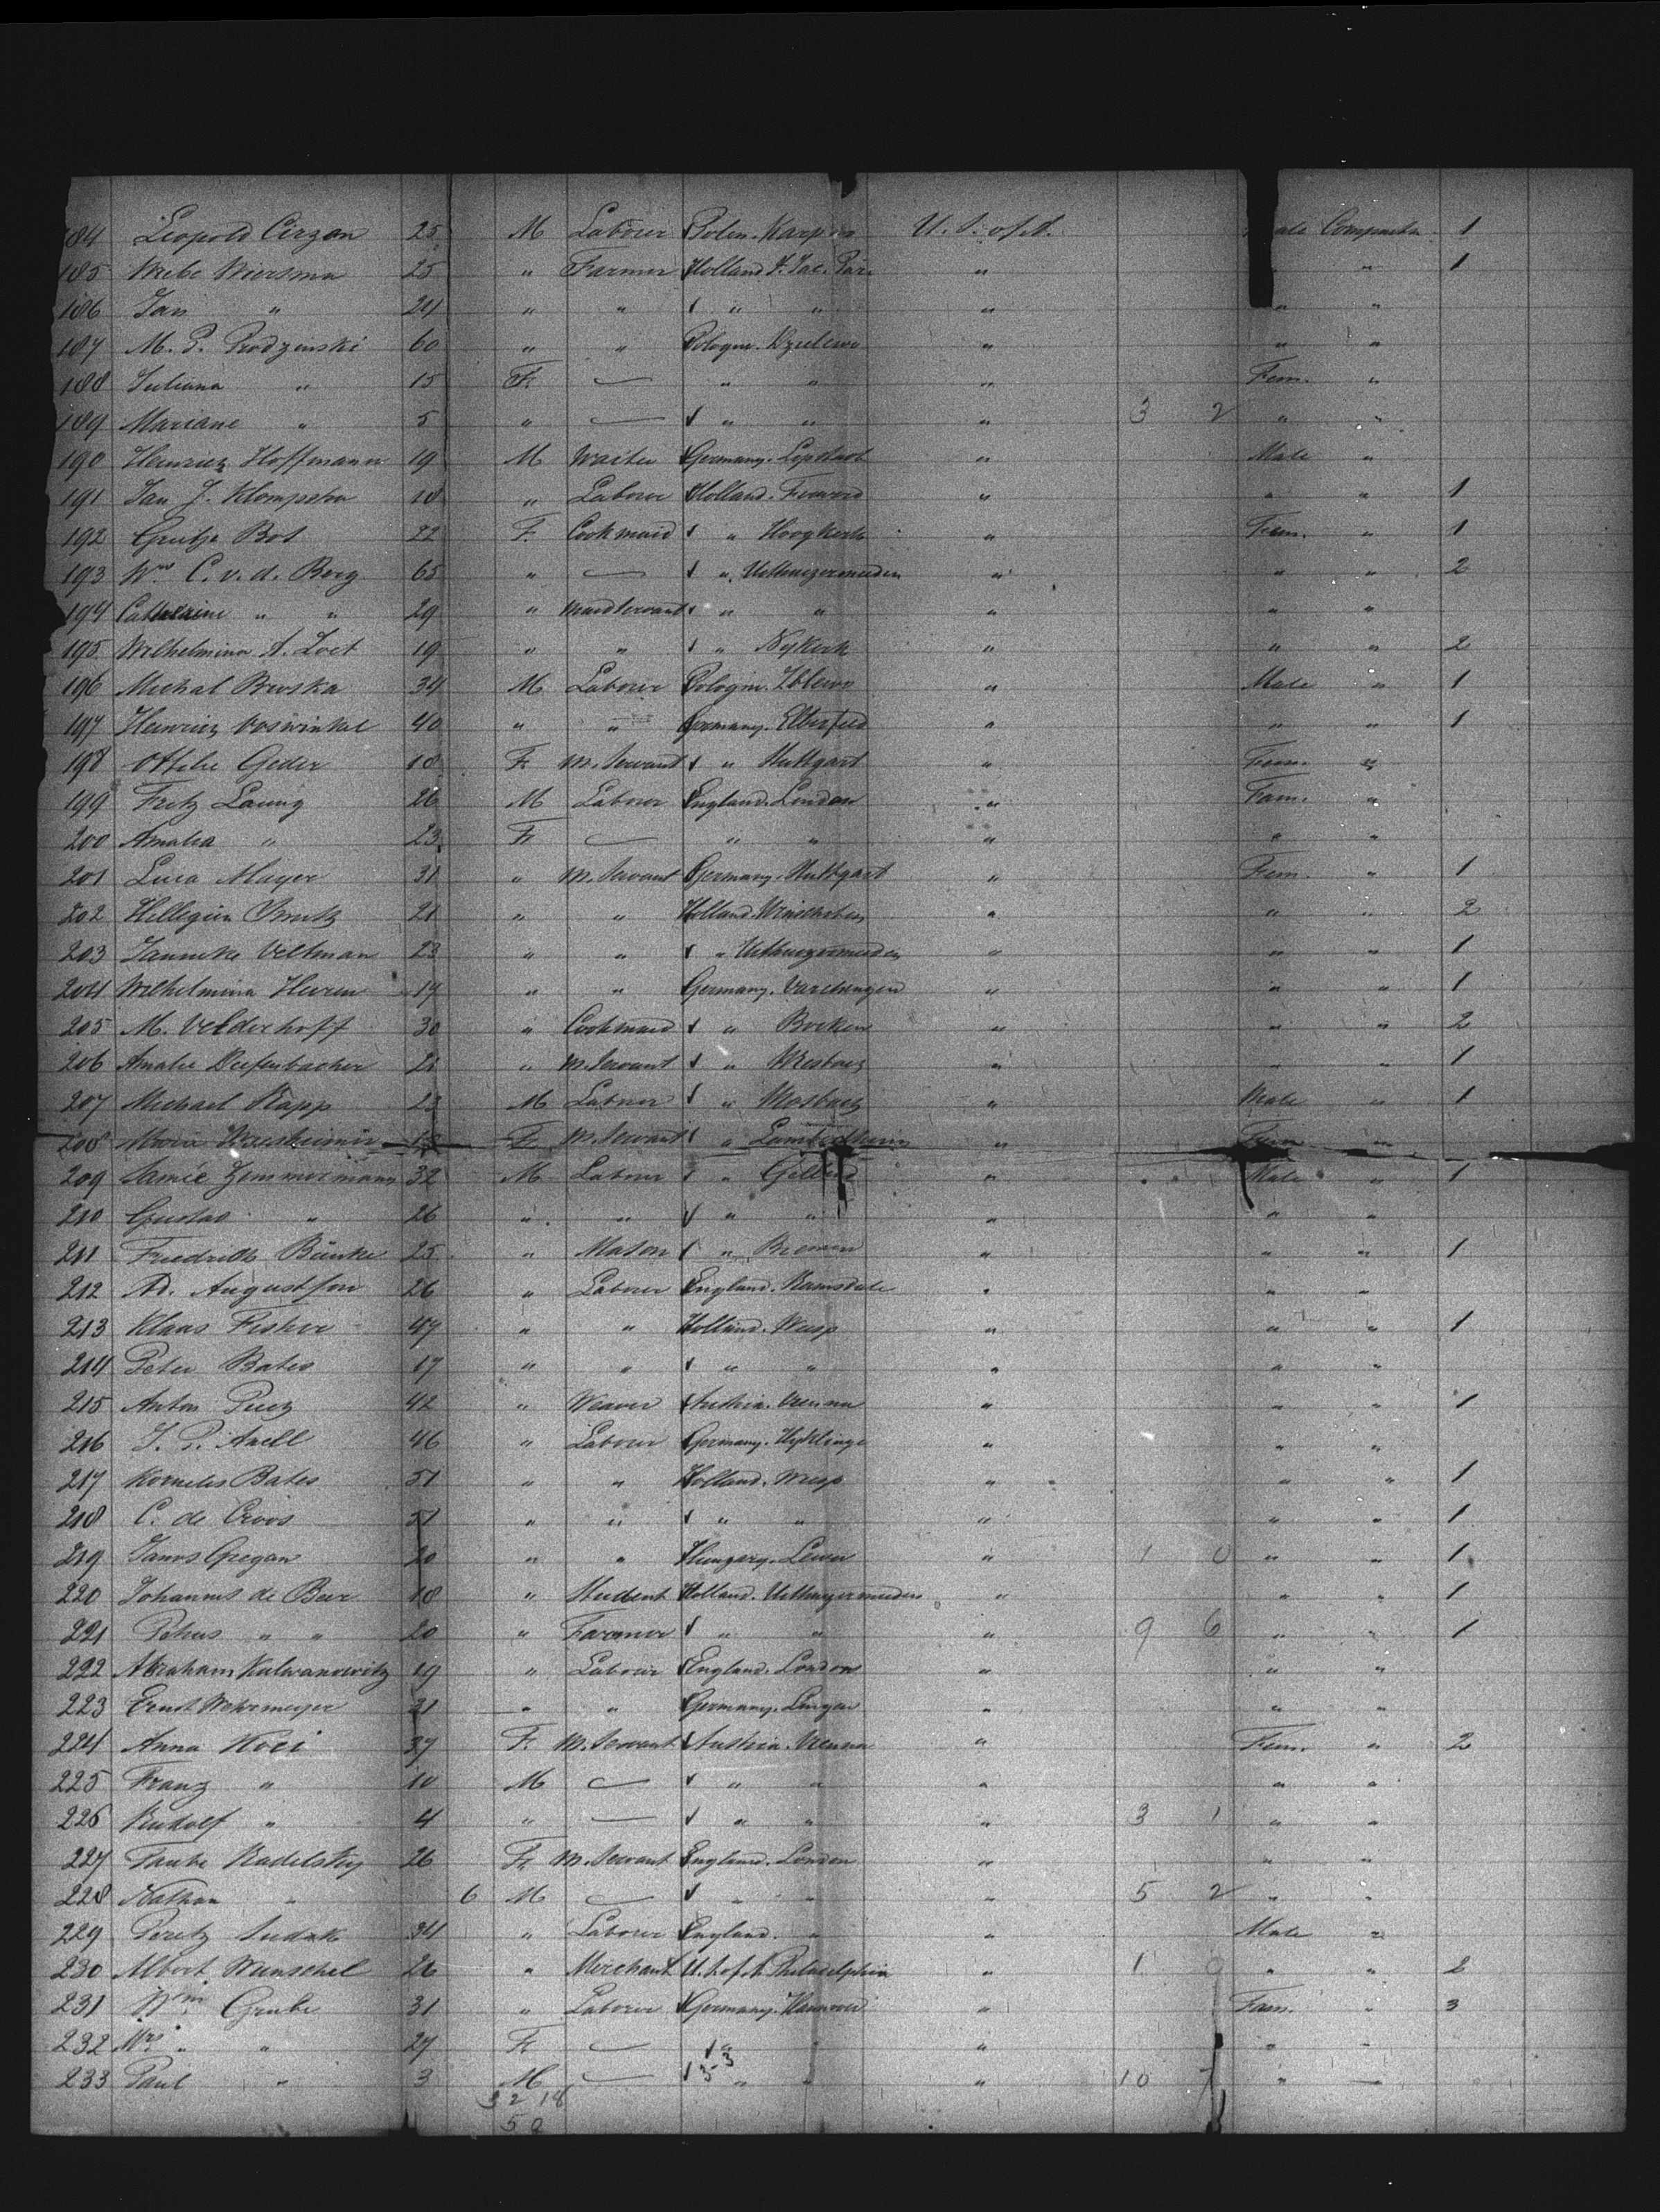 184 Leopold Cirzan 25 M Labourer Polen. U. S. of A. Male Compartm. 1
185 Wiebe Wiersma 25 " Farmer Holland St. Jac. Par. " " " 1
186 Jan " 24 " " " " " " "
187 M. P. Prodzenski 60 " " Pologne. " " "
188 Juliana " 15 F. — " " " Fem. "
189 Mariane " 5 " — " " " 3 2 " "
190 Heinrich Hoffmann 19 M Waiter Germany. Lipstadt " Male "
191 Jan J. Klompstra 18 " Labour Holland. Ferwerd " " " 1
192 Grietje Bos 22 F. Cookmaid " Hoogkerk " Fem. " 1
193 Wwe C. v. d. Berg 65 " — " Uithuizermeeden " " " 2
194 Catharine " " 29 " Maidservant " " " " "
195 Wilhelmina A. Loet 19 " " " Nykerk " " " 2
196 Michal 34 M Labour Pologne. " Male " 1
197 Heinrich Voswinkel 40 " " Germany. Elberfeld " " " 1
198 Ottilie Geder 18 F. M. Servant " Stuttgart " Fem. "
199 Fritz 26 M Labour England. London " Fam. "
200 Amalia " 23 F. — " " " " "
201 Luca Mayer 31 " M. Servant Germany. Stuttgart " Fem. " 1
202 Hillegien Smit 21 " " Holland. Winschoten " " " 2
203 Janneke Veltman 23 " " " Uithuizermeeden " " " 1
204 Wilhelmina 19 " " Germany. " " " 1
205 M. Velderhoff 30 " Cookmaid " Borken " " " 2
206 Amalie Diefenbacher 21 " M. Servant " " " " 1
207 Michael Rapp 23 M Labour " Mosbach " Male " 1
208 Maria F. M. Servant " " Fem "
209 Zimmermann 32 M Labour " " Male " 1
210 Gustav " 26 " " " " " " "
211 Friedrich Bänke 25 " Mason " Bremen " " " 1
212 Ad. Augustson 26 " Labour England. Ramsdale " " "
213 Klaas Fisher 47 " " Holland. Weesp " " " 1
214 Peter Bates 17 " " " " " " "
215 Anton 42 " Weaver Austria. Vienna " " " 1
216 J. P. Axell 46 " Labour Germany. " " "
217 Kornelis Bates 51 " " Holland. Weesp " " " 1
218 C. de Croos 51 " " " " " " " 1
219 Janos Gregan 20 " " Hungary. " 1 0 " " 1
220 Johannes de Beer 18 " Student Holland. Uithuizermeeden " " " 1
221 Petrus " " 20 " Farmer " " " 9 6 " " 1
222 Abraham Kulwanowitz 19 " Labour England. London " " "
223 Ernst Wehrmeyer 31 " " Germany. Lingen " " "
224 Anna Koci 37 F. M. Servant Austria. Vienna " Fem. " 2
225 Franz " 10 M — " " " " "
226 Rudolf " 4 " — " " " 3 1 " "
227 Taube Radelsky 26 F. M. Servant England. London " " "
228 Nathan " 6 M — " " " 5 2 " "
229 Peretz Sudak 34 " Labour England. " " Male "
230 Albert Wunschel 26 " Merchant U. S. of A. Philadelphia " 1 9 " " 2
231 Wm. Grube 31 " Labour Germany. Hannover " Fam. " 3
232 Mrs. " " 27 F. — " " " "
233 Paul " 3 M — " " " 10 7 " —
32 18
50